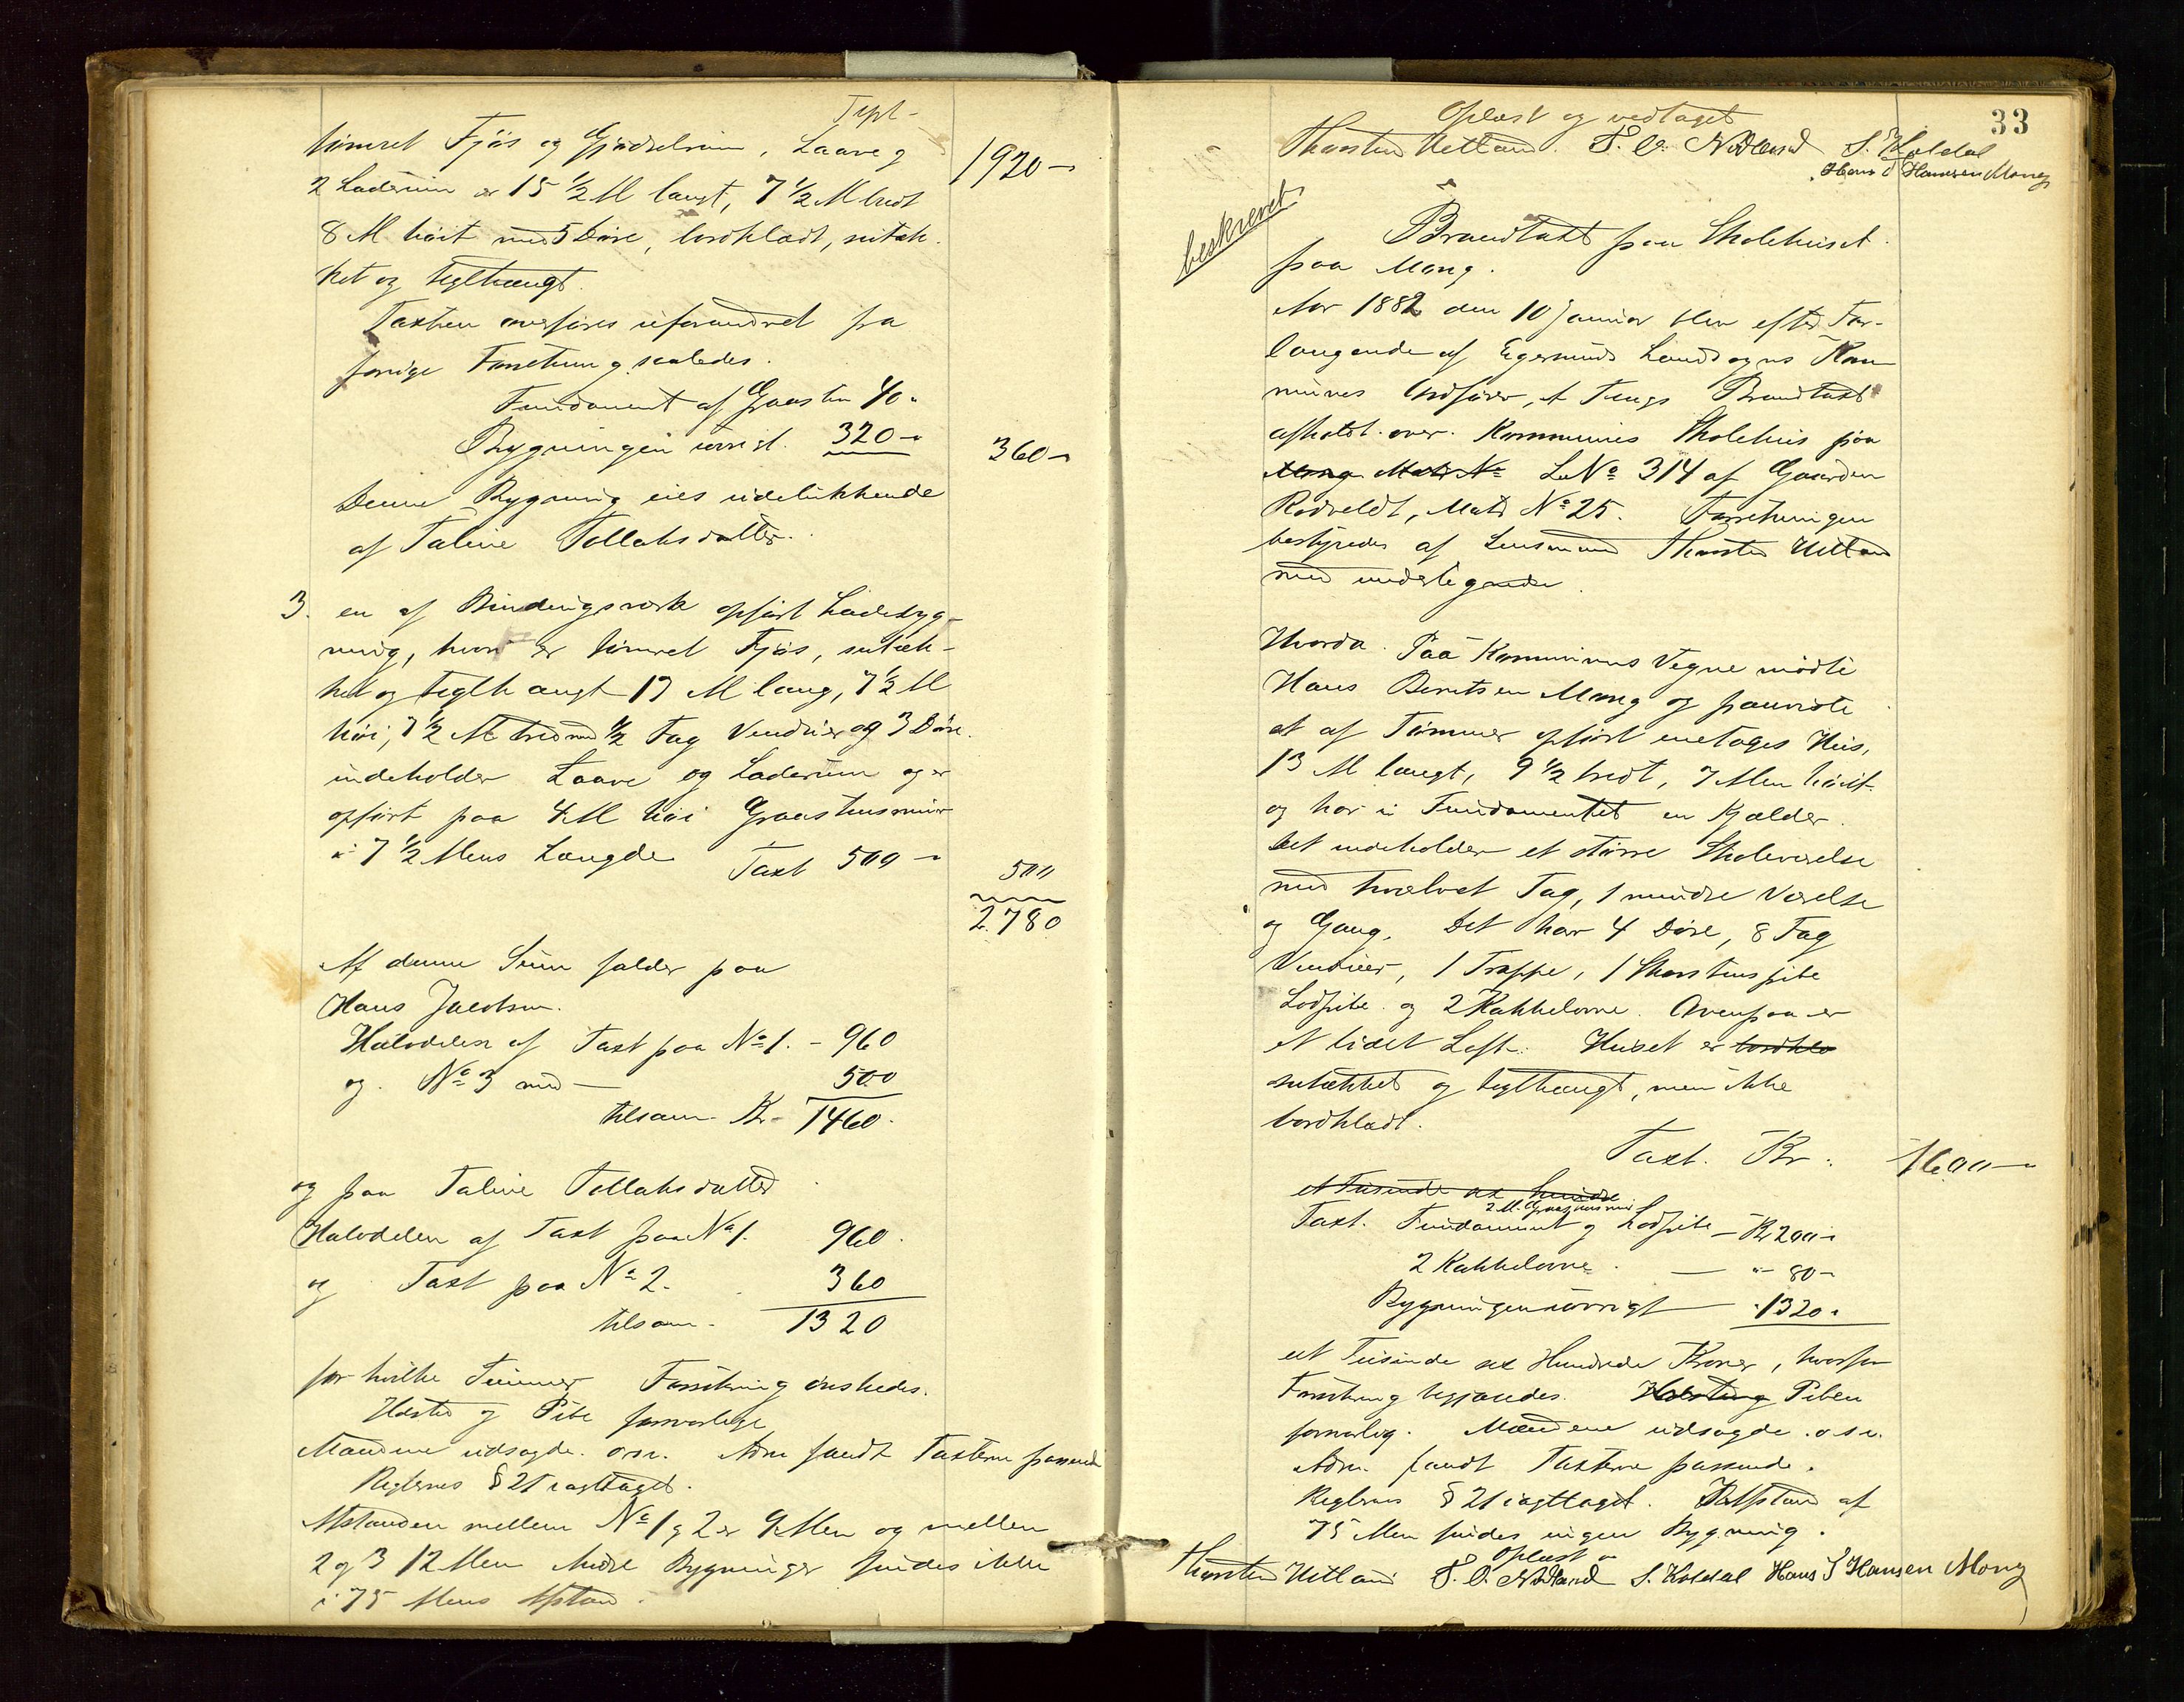 Tspt-
tømret Fjøs og Gjødselrum, Laave og
2 Laderum er 15 1/2 M langt, 7 1/2 M bredt
8 M høit med 5 Døre, bordklædt, sutæk-
ket og teglhængt.
Taxten overføres uforandret fra
forrige Forretning saaledes.
Fundament af Graasten 40.
Bygningen iøvrigt. 320-
Denne Bygning eies udelukkende
af Taline Tollaksdatter.
1920-
360-
3. en af Bindingsværk opført Ladebyg-
ning, hvori er tømret Fjøs, sutæk-
ket og teglhængt 17 M lang, 7 1/2 M
høi, 7 1/2 M bred med 1/2 Fag Vinduer og 3 Døre.
indeholder Laave og Laderum og er
opført paa 4 M høi Graastensmur
i 7 1/2 Mens Længde Taxt 500-
500
2.780
Af denne Sum falder paa
Hans Jacobsen.
Halvdelen af Taxt paa No 1. - 960
og No 3 med - 500
tilsam. Kr. 1460.
og paa Taline Tollaksdatter
Halvdelen af Taxt paa No 1. 960.
og Taxt paa No 2. 360
tilsam. 1320
for hvilke Summer Forsikring ønskedes.
Ildsted og Pibe forsvarlige
Mændene udsagde o.s.v. Adm fandt Taxterne passende
Reglernes § 21 iagttaget.
Afstanden mellem No 1 og 2 er 9 Men og mellem
2 og 3 12 Men Andre Bygninger findes ikke
i 75 Mens Afstand.
33
Oplæst og vedtaget
Thorsten Uetland. T. O. Nodland S. Koldal
Hans S Hansen Mong
beskrevet
Brandtaxt paa Skolehuset
paa Mong.
Aar 1882 den 10 Januar blev efter For-
langende af Egersunds Landsogns Kom-
munes Ordfører, et Tings Brandtaxt
afholdt over Kommunes Skolehus paa
Mong Matr No LNo 314 af Gaarden
Rodveldt, Matr No 25. Forretningen
bestyredes af Lensmand Thorsten Uetland
med undertegnede.
Hvorda. Paa Kommunens Vegne mødte
Hans Berntsen Mong og paaviste
et af Tømmer opført enetages Hus,
13 M langt, 9 1/2 bredt, 7 Men høit
og har i Fundamentet en Kjelder.
Det indeholder et større Skoleværelse
med hvælvet Tag, 1 mindre Værelse
og Gang. Det har 4 Døre, 8 Fag
Vinduer, 1 Trappe, 1 Skorstenspibe
Lodpibe og 2 Kakkelovne. Ovenpaa er
et lidet Loft. Huset er bordklæ
sutækket og teglhængt, men ikke
bordklædt.
Taxt. Kr. 1600-
et Tusinde sex hundre
2 M. Graastensmur
Taxt. Fundament og Lodpibe - Kr 200-
2 Kakkelovne. - " 80-
Bygningen iøvrigt - "1320.
et Tusinde sex Hundrede Kroner, hvorfor
Forsikring begjæredes. Piben
forsvarlig. Mændene udsagde o.s.v.
Adm. fandt Taxterne passende.
Reglernes § 21 iagttaget. I Afstand af
75 Men findes ingen Bygning.
Oplæst
Thorsten Uetland T. O. Nodland S. Koldal Hans S Hansen Mong